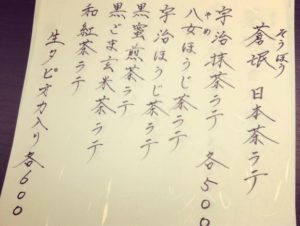 そうぼう
蒼氓 日本茶ラテ
宇治抹茶ラテ 各500
やめ
八女ほうじ茶ラテ
宇治ほうじ茶ラテ
黒蜜煎茶ラテ
黒ごま玄米茶ラテ
和紅茶ラテ
生タピオカ入り 各600